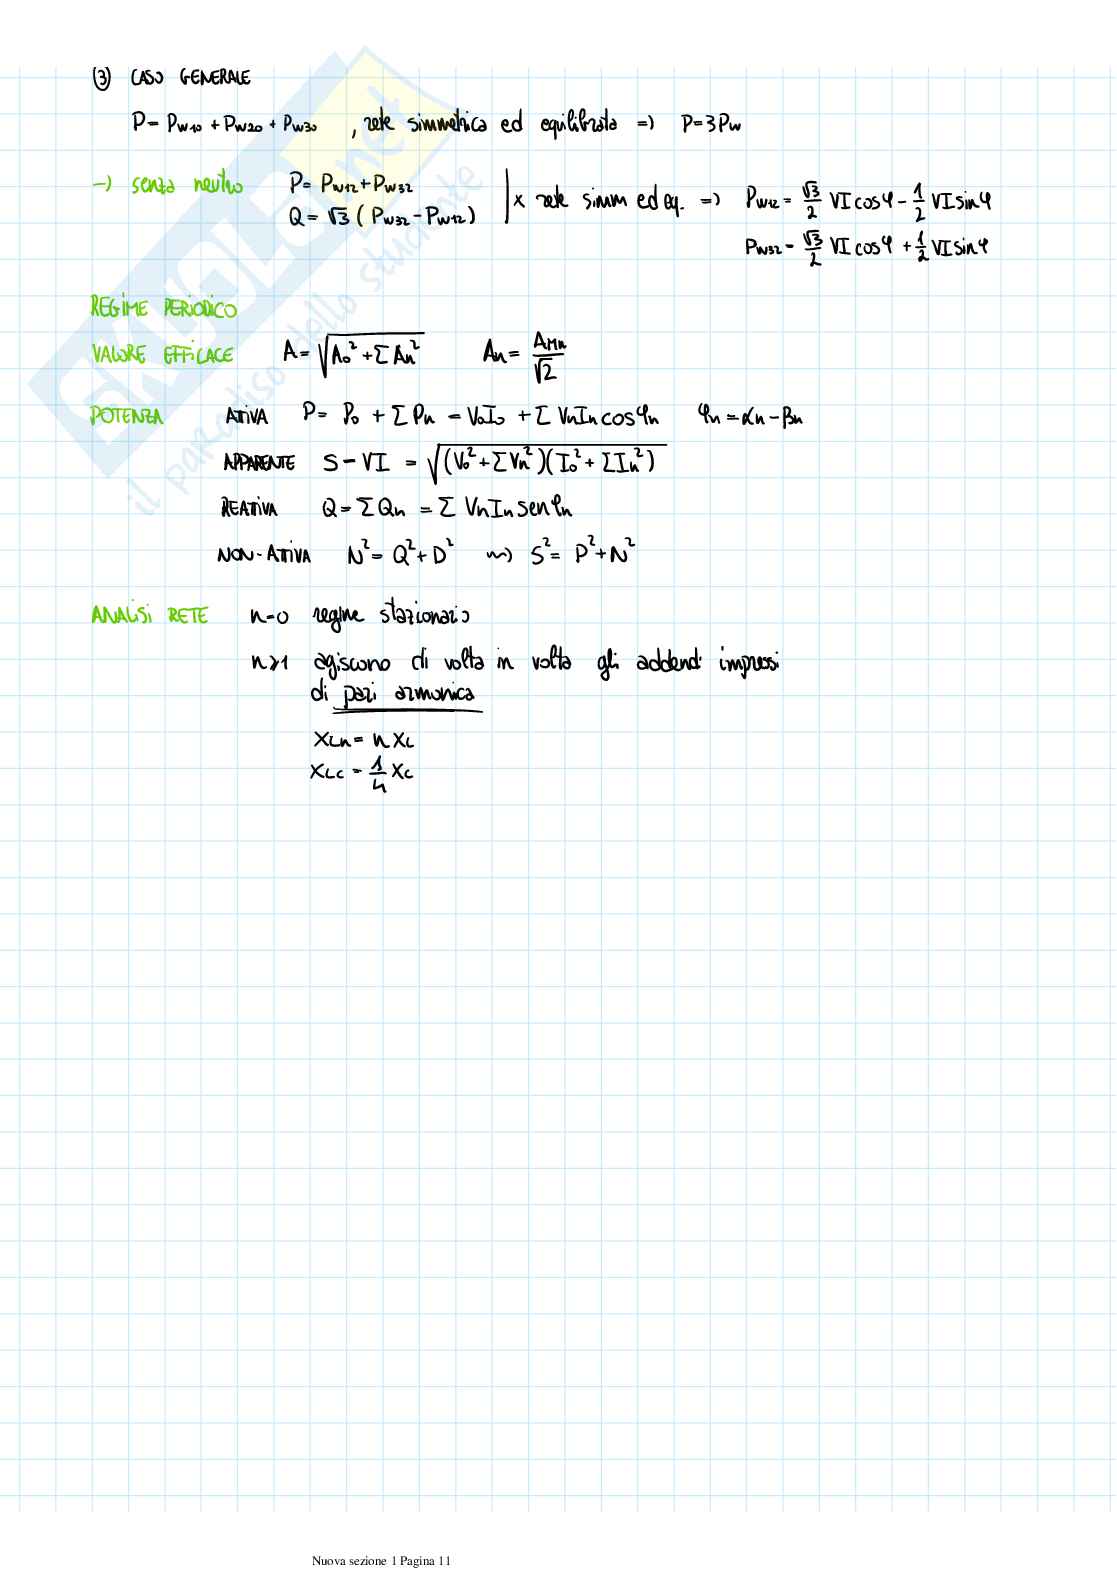 (3) CASO GENERALE
P = Pw10 + Pw20 + Pw30 , rete simmetrica ed equilibrata => P=3Pw
-) senza neutro P = Pw12 + Pw32
Q = √3 ( Pw32 - Pw12 ) | x rete simm ed eq. => Pw12 = √3/2 VI cosφ - 1/2 VI sinφ
Pw32 = √3/2 VI cosφ + 1/2 VI sinφ
REGIME PERIODICO
VALORE EFFICACE A = √(A0² + ΣAn²) An = AMn/√2
POTENZA ATIVA P = P0 + ΣPn = V0I0 + Σ VnIn cosφn φn = αn - βn
APPARENTE S = VI = √((V0² + ΣVn²)(I0² + ΣIn²))
REATIVA Q = ΣQn = Σ VnIn senφn
NON-ATIVA N² = Q² + D² ~> S² = P² + N²
ANALISI RETE n=0 regime stazionario
n≥1 agiscono di volta in volta gli addendi impressi
di pari armonica
XLn = n XL
XLc = 1/n Xc
SKUOLA.net
il paradiso dello studente
Nuova sezione 1 Pagina 11